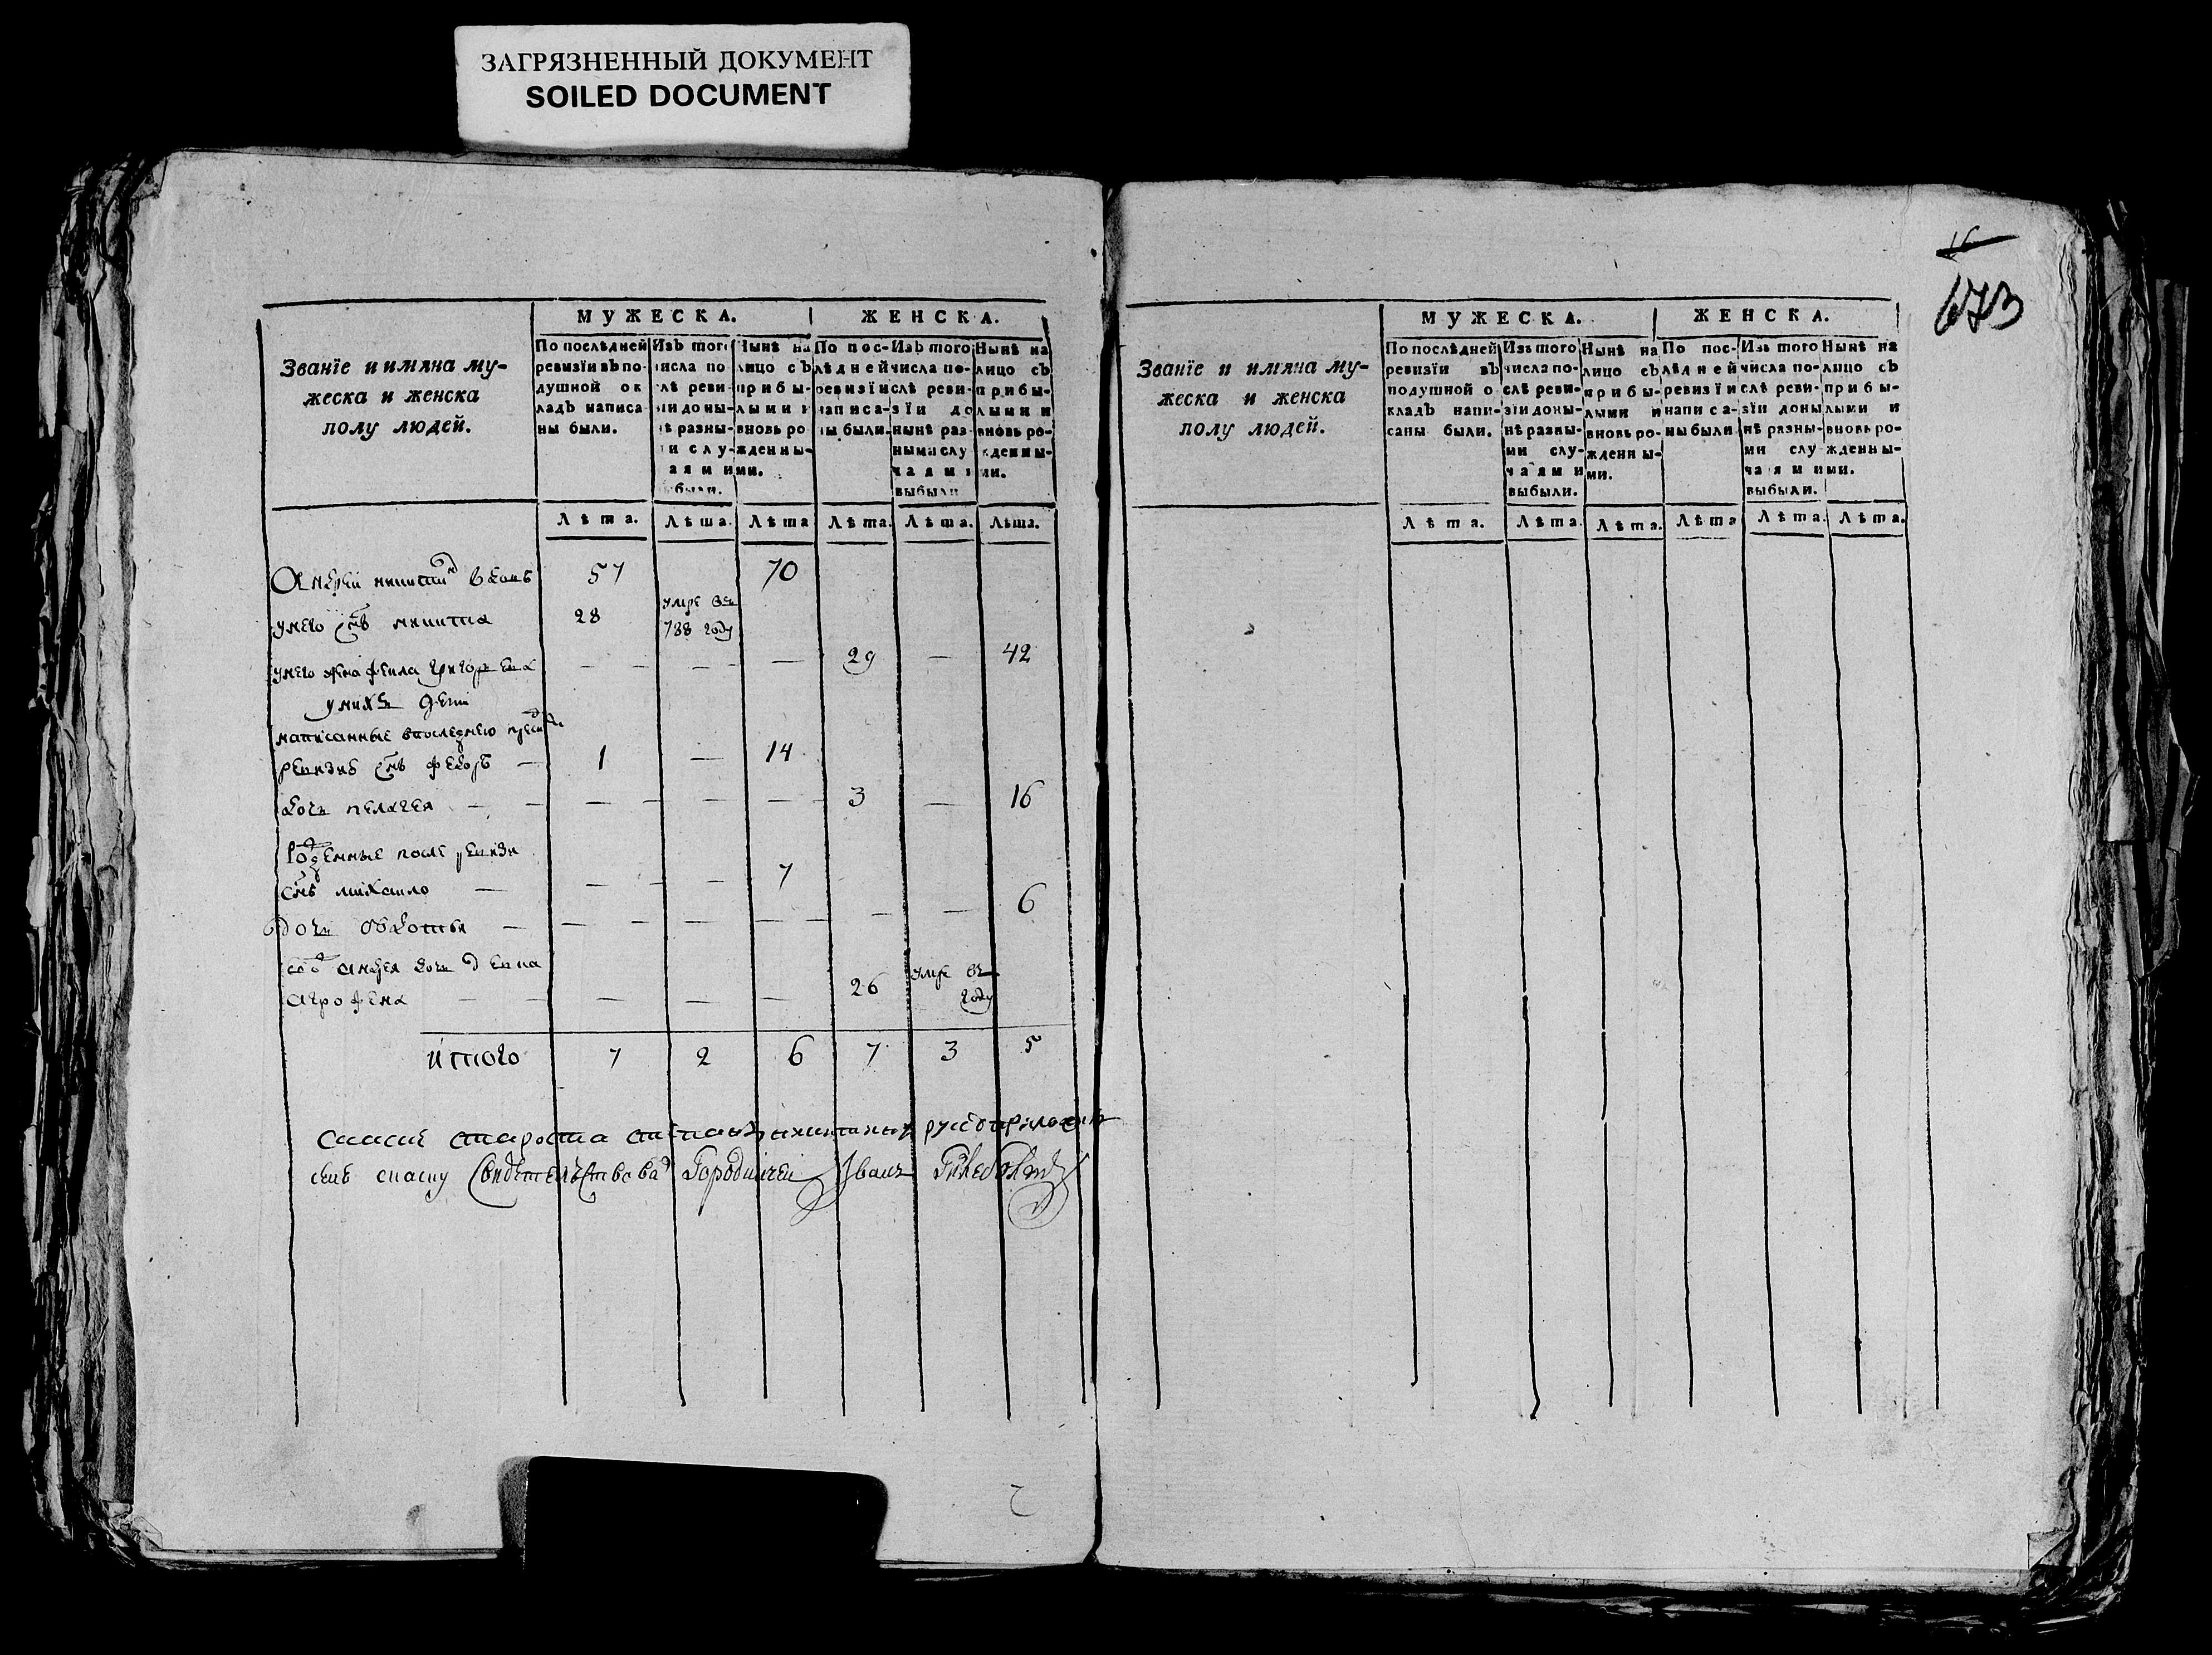 ЗАГРЯЗНЕННЫЙ ДОКУМЕНТ
SOILED DOCUMENT
673
МУЖЕСКА. ЖЕНСКА.
Званїе и имяна му-
жеска и женска
полу людей.
По послѣдней
ревизїи въ по-
душной ок
ладъ написа
ны были.
Изъ того
числа по
слѣ реви-
зїи до ны-
нѣ разны-
ми слу-
чаями
выбыли.
Нынѣ на
лицо съ
прибы-
лыми и
вновь ро
жденны-
ми.
По пос-
лѣдней
ревизїи
написа-
ны были.
Изъ того
числа по-
слѣ реви-
зїи до
нынѣ раз
ными слу
чаями
выбыли
Нынѣ на
лицо съ
прибы-
лыми и
вновь ро-
жденны-
ми.
Лѣта. Лѣта. Лѣта Лѣта. Лѣта. Лѣта.
Андрей 57 70
у него снъ никита 28 умре въ
788 году
у него жена 29 42
у нихъ дети
написанные в последнею пред
ревизию снъ федоръ 1 14
дочь пелагея 3 16
рожденные после ревизи
снъ михаило 7
дочь 6
андрея дочь девка
агрофена 26 умре въ
году
итого 7 2 6 7 3 5
староста
свидетельствовал Городничей Иванъ
МУЖЕСКА. ЖЕНСКА.
Званїе и имяна му-
жеска и женска
полу людей.
По послѣдней
ревизїи въ
подушной о
кладъ напи-
саны были.
Изъ того
числа по-
слѣ реви-
зїи доны-
нѣ разны-
ми слу-
чаями
выбыли.
Нынѣ на
лицо съ
прибы-
лыми и
вновь ро-
жденны-
ми.
По пос-
лѣдней
ревизїи
написа-
ны были
Изъ того
числа по-
слѣ реви-
зїи доны
нѣ разны-
ми слу
чаями
выбыли.
Нынѣ на
лицо съ
прибы-
лыми и
вновь ро-
жденны-
ми.
Лѣта. Лѣта. Лѣта. Лѣта Лѣта. Лѣта.